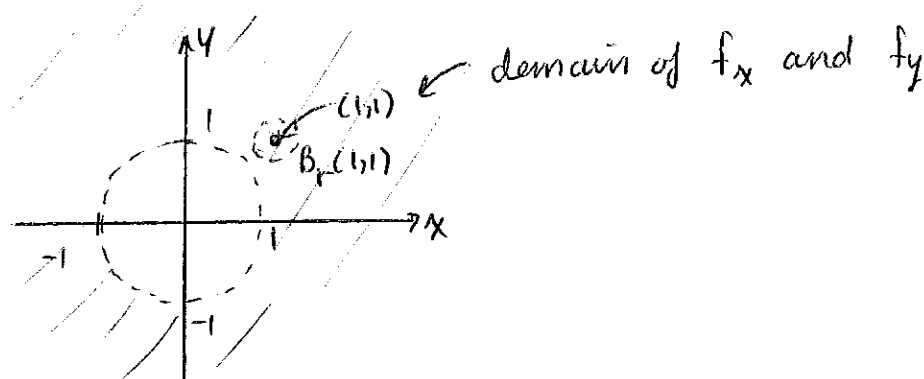 y
domain of fx and fy
(1,1)
1
Br(1,1)
x
-1
1
-1